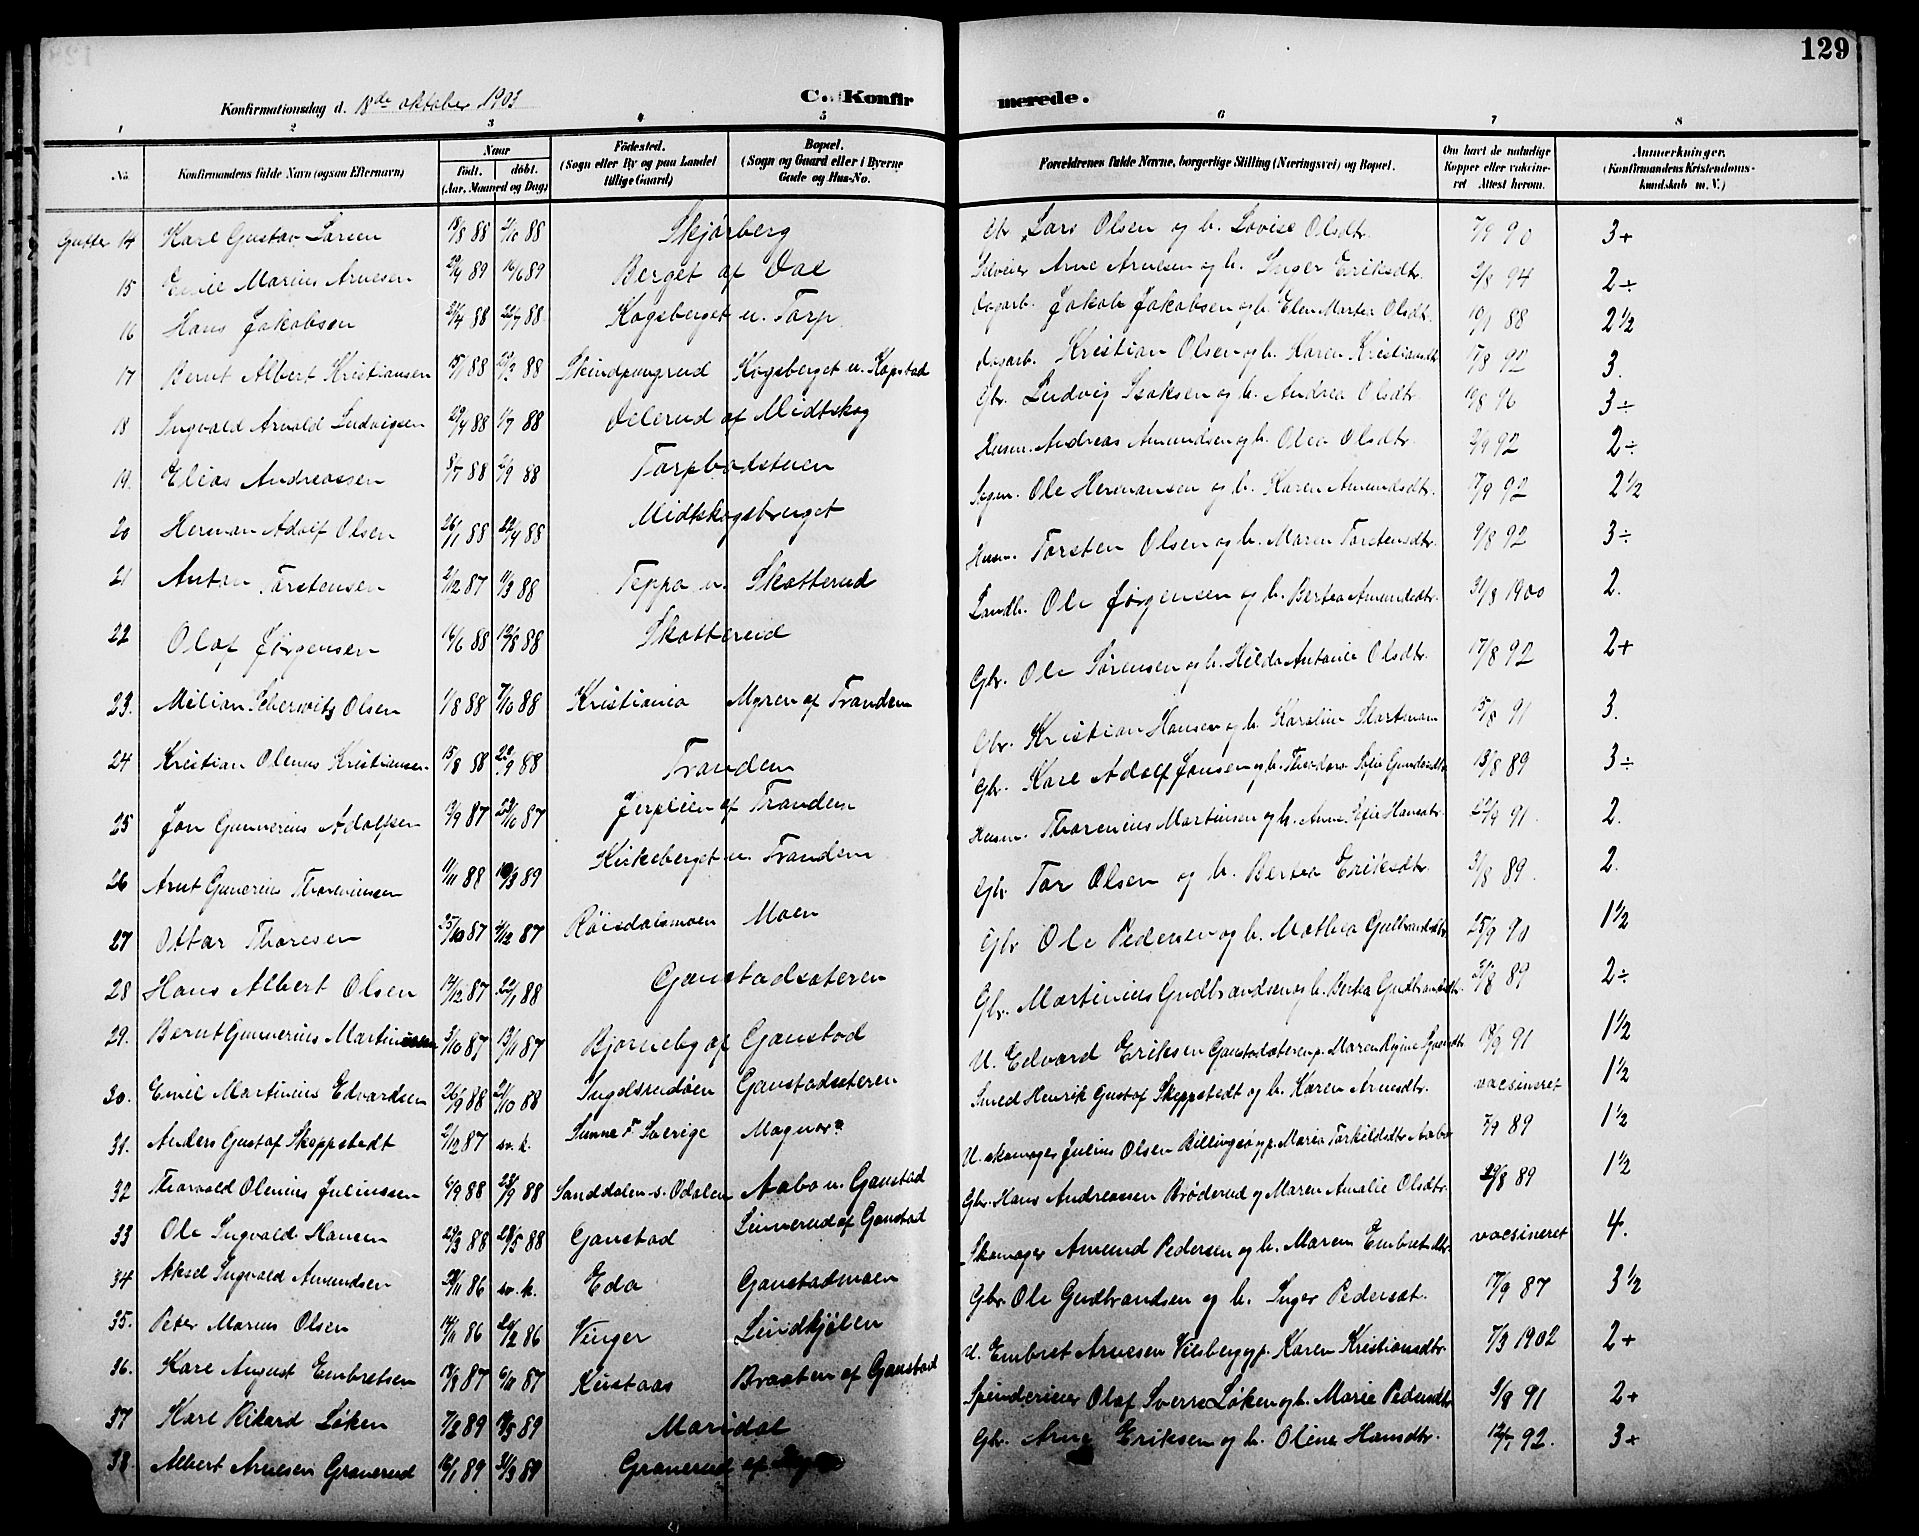 129
Konfirmationsdag d. 18de oktober 1903 C. Konfirmerede.
1 2 3 4 5 6 7 8
No Konfirmandens fulde Navn (ogsaa Efternavn) Naar født. døbt. (Aar, Maaned og Dag) Fødested. (Sogn eller By og paa Landet tillige Gaard) Bopæl. (Sogn og Gaard eller i Byerne Gade og Hus-No. Forældrenes fulde Navne, borgerlige Stilling (Næringsvei) og Bopæl. Om havt de naturlige Kopper eller vakcineret Attest herom. Anmerkninger. (Konfirmandens Kristendomskundskab m. V.)
Gutter 14 Karl Gustav Larsen 18/8 88 /10 88 Skjørberg Gbr Lars Olsen og h. Lovise Olsdtr. 7/9 90 3+
15 Emil Marius Arnesen 29/4 89 16/6 89 Berget af Dal Selveier Arne Arnesen og h. Inger Eriksdtr. 2/8 94 2÷
16 Hans Jakobsen 21/4 88 22/7 88 Kogsberget u. Torp. dagarb. Jakob Jakobsen og h. Elen Martea Olsdt. 10/1 88 2 1/2
17 Bernt Albert Kristiansen 15/1 88 /3 88 Skindpungrud Kogsberget u. Kopstad dagarb. Kristian Olsen og h. Karen Kristiansdtr 17/8 92 3.
18 Ingvald Arnold Ludvigsen 29/4 88 1/7 88 Oelerud af Midtskog Gbr. Ludvig Isaksen og h. Andrea Olsdtr. 10/8 96 3÷
19. Elias Andreassen /7 88 2/9 88 Torpbadstuen Husm. Andreas Amundsen og h. Olea Olsdtr. 2/9 92 2÷
20 Herman Adolf Olsen 26/1 88 22/4 88 Midtskogsberget Ole Hermansen og h. Karen Amundsdtr. 17/9 92 2 1/2
21 Anton Torstensen 2/12 87 11/3 88 Teppa u. Skotterud Husm. Torsten Olsen og h. Maren Torstensdtr. 9/8 92 3÷
22 Olaf Jørgensen 16/6 88 12/8 88 Skotterud Landh. Ole Jørgensen og h. Bertea Amundsdtr. 31/8 1900 2.
23. Milian Scherwitz Olsen 1/8 88 7/10 88 Kristiania Myren af Trandem Gbr. Ole Sørensen og h. Hilda Antonie Olsdtr. 17/8 92 2+
24 Kristian Olenus Kristiansen 15/8 88 /9 88 Trandem Gbr. Kristian Hansen og h. Karoline 15/8 91 3.
25 Jon Gunnerius Adolfsen /9 87 23/10 87 Jerpelien af Trandem Gbr. Karl Adolf Jonsen og h. Theodora Sofie Gundersdtr 13/8 89 3÷
26 Arnt Gunerius Thoreniusen 11/11 88 10/3 89 Kirkeberget u. Trandem Husm. Thorenius Martinsen og h. Anne Efie Hansdtr. 22/9 91. 2.
27 Ottar Thoresen 25/10 87 4/12 87 Röisdalsmoen Moen Gbr Tor Olsen og h. Bertea Eriksdtr. 3/8 89. 2.
28 Hans Albert Olsen 14/12 87 22/1 88 Gaustadsæteren Gbr Ole Pedersen og h. Mathea Gulbrandsdtr 25/9 90 1 1/2
29. Bernt Gunnerius Martiniussen 3/10 87 13/11 87 Bjørneby af Gaustad Gbr. Martinius Gudbrandsen og h. Bertea Gudbrandsdtr. /8 89 2÷
30. Emil Martinius Edvardsen 26/9 88 21/10 88 Ingelsrudöen Gaustadsæteren U. Edvard Eriksen Gaustadsæteren p. Maren Regine 18/9 91 1 1/2
31. Anders Gustaf Skeppstedt 2/12 87 sv. k. Sunne F. Sverige Magnor Smed Henrik Gustaf Skeppstedt og h. Karen Arnesdtr. vacsineret 1 1/2
32 Thorvald Olenius Juliussen 6/9 88 23/9 88 Sanddalen S. Odalen Aabo u. Gaustad U. skomager Julius Olsen Billingsö og p. Maria Torkildsdtr Aabo 7/9 89 1 1/2
33 Ole Ingvald Hansen 24/3 88 28/5 88 Gaustad Linnerud af Gaustad Gbr. Hans Andreassen Brøderud og Maren Amalie Olsdtr. 23/8 89 1 1/2
34 Aksel Ingvald Amundsen /11 86 sv. k. Eda Gaustadmoen Skomager Amund Pedersen og h. Maren Embretsdtr. vacsineret 4.
35. Peter Marius Olsen 14/11 86 26/12 86 Vinger Lindkjølen Gbr. Ole Gudbrandsen og h. Inger Pedersdt. 17/9 87 3 1/2
36. Karl August Embretsen 17/9 87 6/11 87 Kustaas Braaten af Gaustad U. Embret Arnesen Vilsberg og p. Karen Kristiansdtr 7/3 1902 2+
37 Karl Rikard Løken 7/2 89 /5 89 Maridal Spinderieier Olaf Sverre Løken og h. Marie Pedersdtr 3/9 91 2+
38 Albert Arnesen Granerud 16/1 89 31/3 89 Granerud af Gbr. Arne Eriksen og h. Oline Hansdtr. 92. 3+